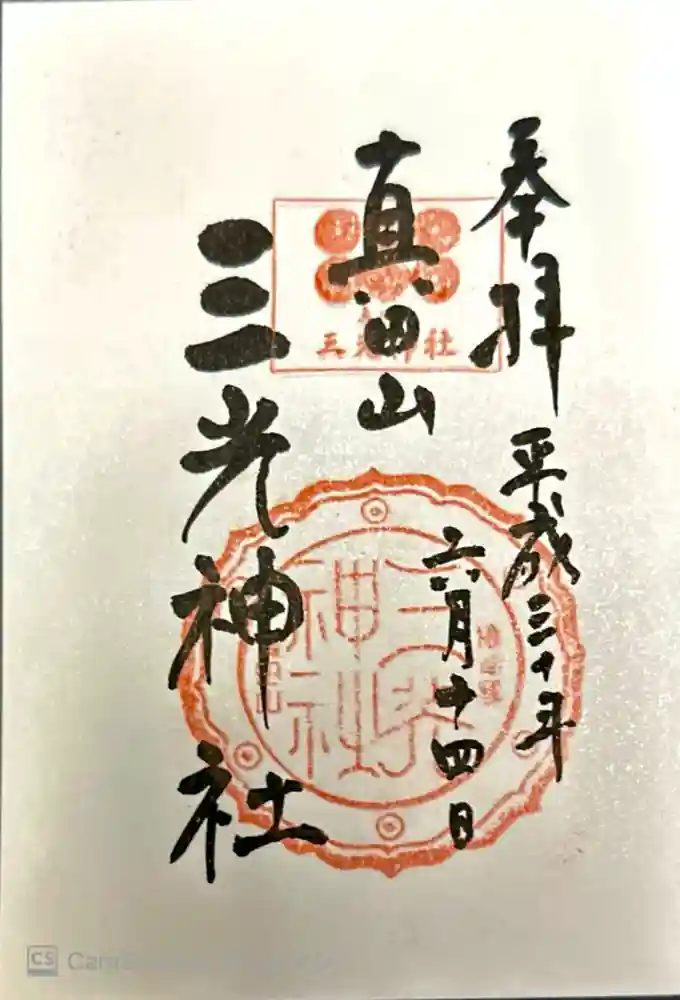 奉拝
平成三十年
六月十四日
真田山
三光神社
三光神社
三光神社
CS